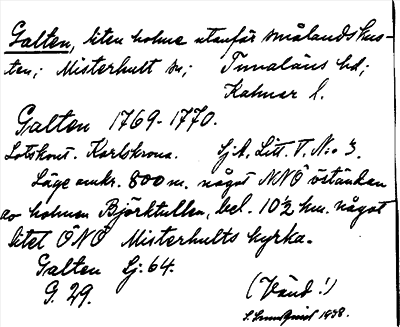 Galten, liten holme utanför smålandskus-
ten; Misterhult sn; Tunaläns hd;
Kalmar l.
Galten 1769-1770.
Lotskont. Karlskrona. Sj.A. Litt. V. N:o 3.
Läge omkr. 800 m. något NNÖ öständan
av holmen Björktullen, bel. 10½ km. något
litet ÖNÖ Misterhults kyrka.
Galten Gj: 64.
G. 29. (Vänd!)
S. Lundquist 1938.